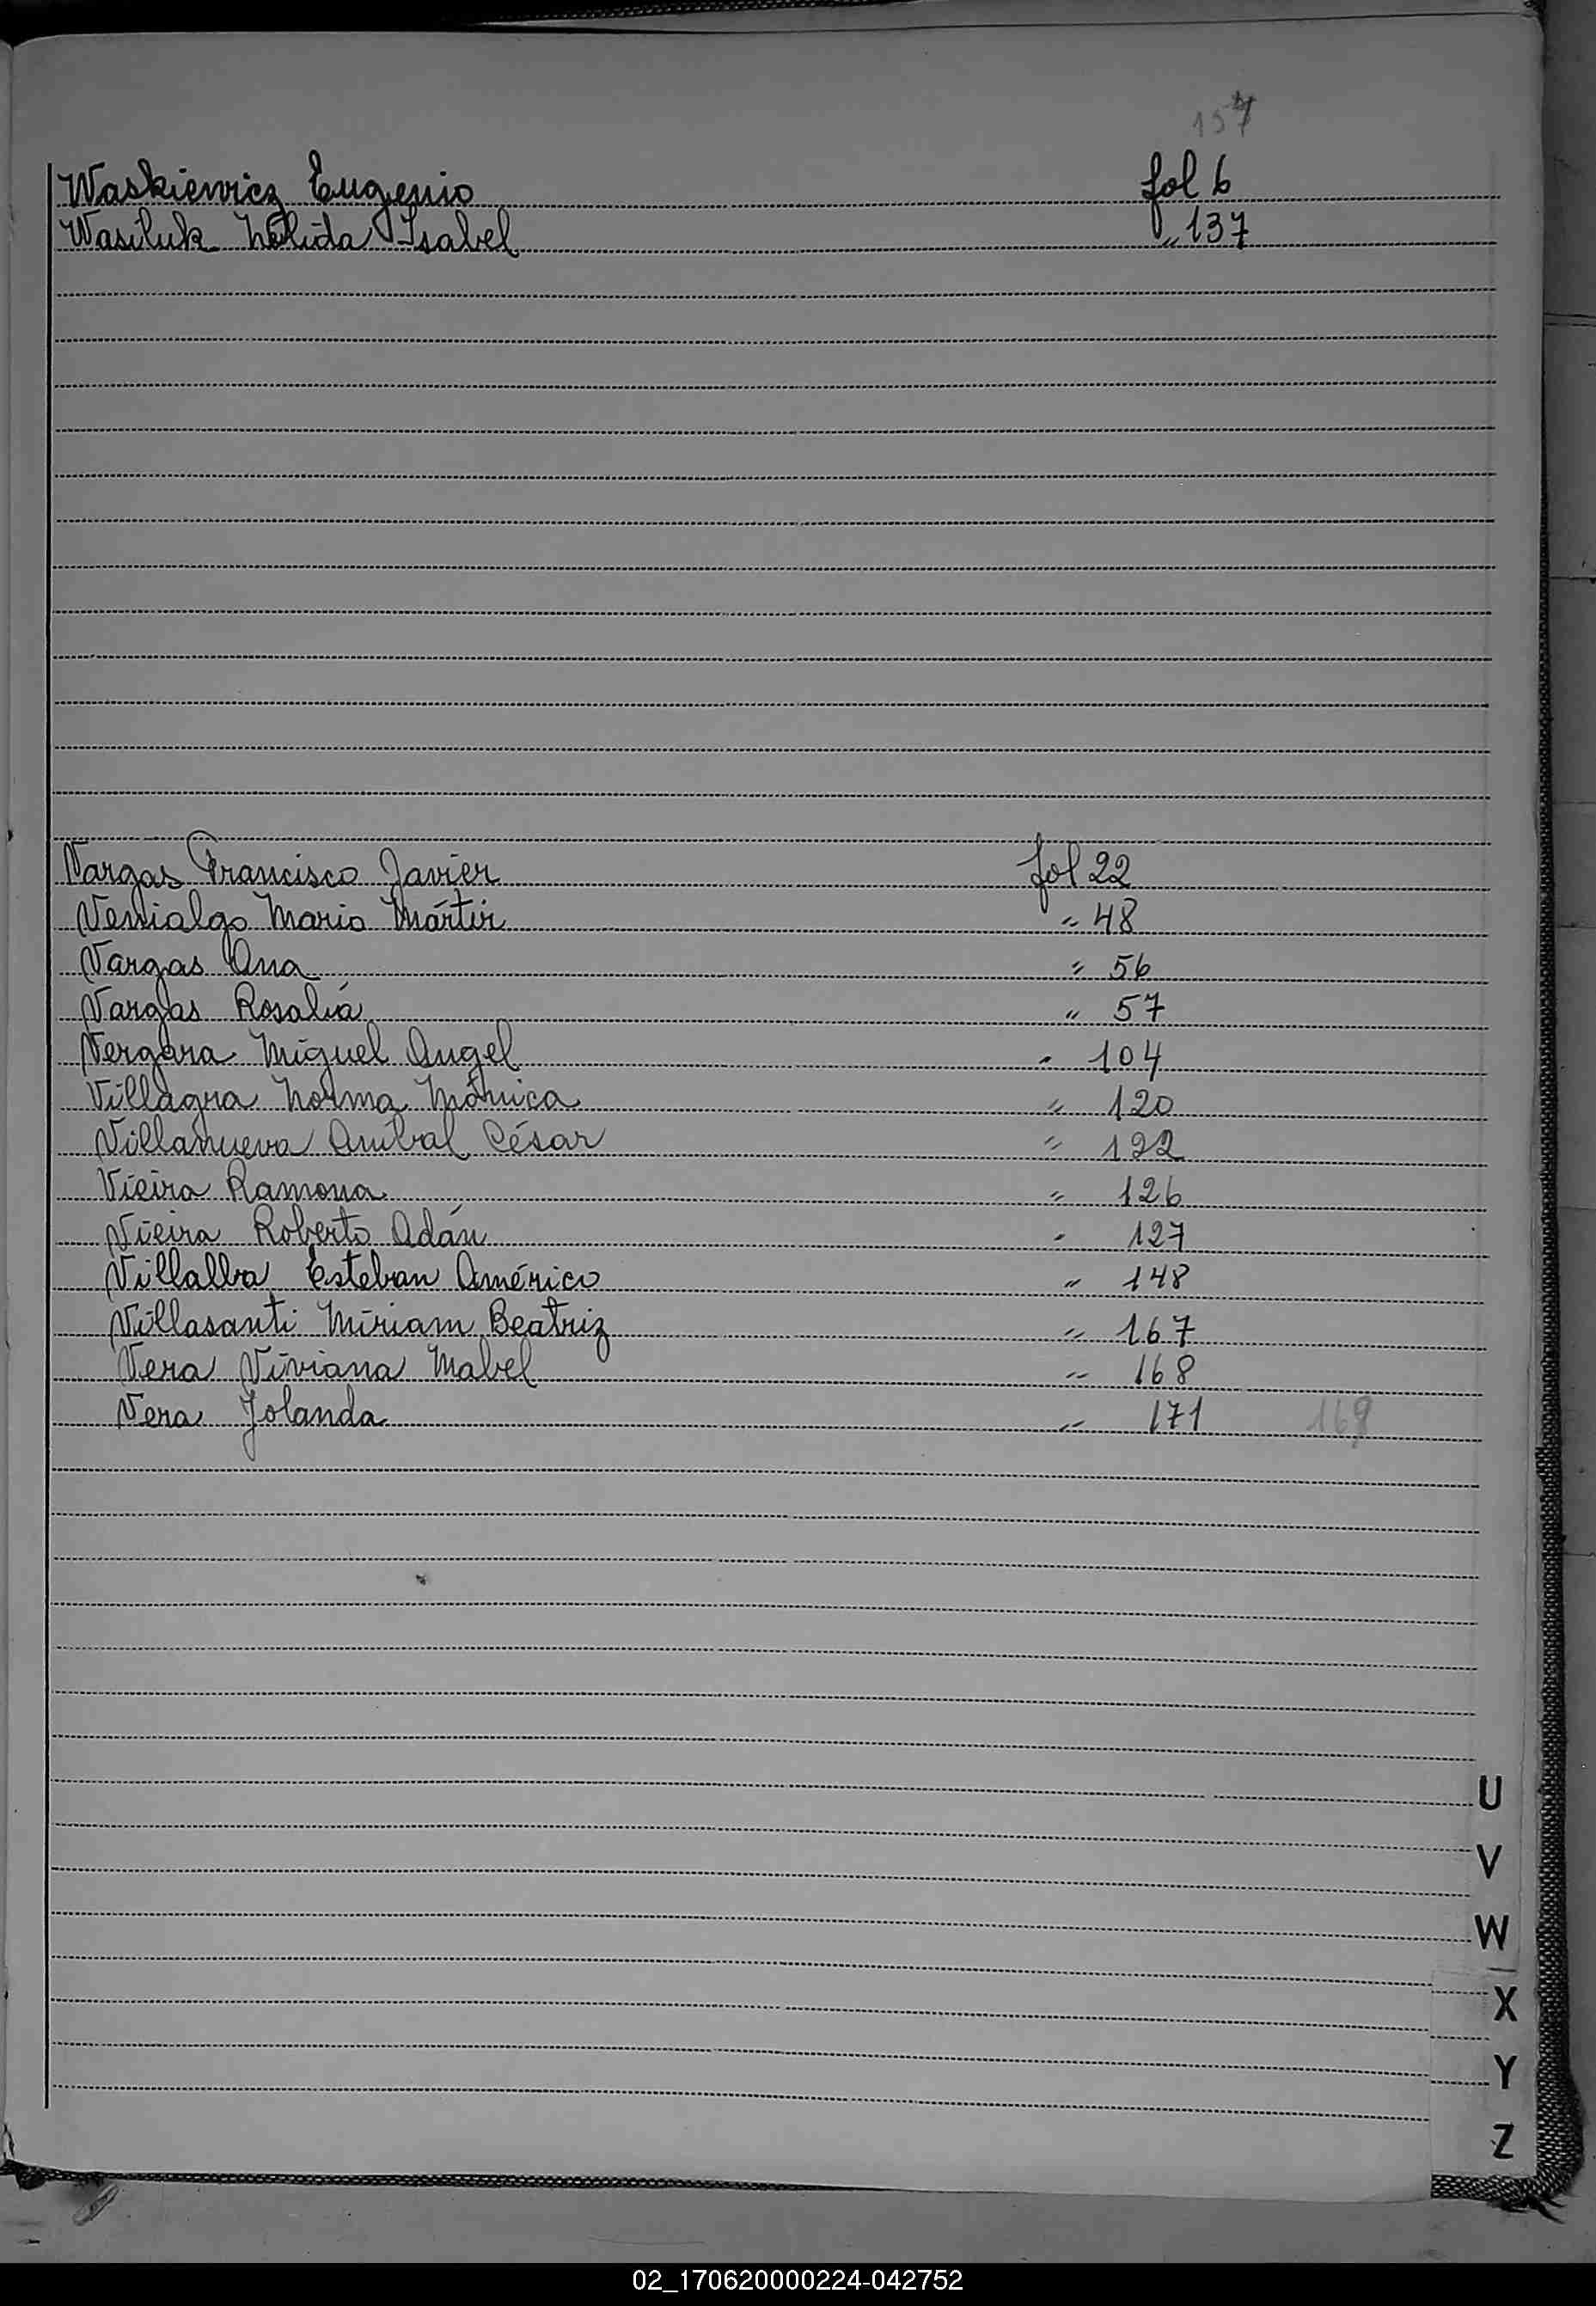 157
Waskiewicz Eugenio fol 6
Wasiluk Nélida Isabel " 137
Vargas Francisco Javier fol 22
Venialgo Mario Mártir " 48
Vargas Ana " 56
Vargas Rosalía " 57
Vergara Miguel Angel " 104
Villagra Norma Mónica " 120
Villanueva Aníbal César " 122
Vieira Ramona " 126
Vieira Roberto Adán " 127
Villalba Esteban Américo " 148
Villasanti Míriam Beatriz " 167
Vera Viviana Mabel " 168
Vera Jolanda " 171 169
U
V
W
X
Y
Z
02_170620000224-042752